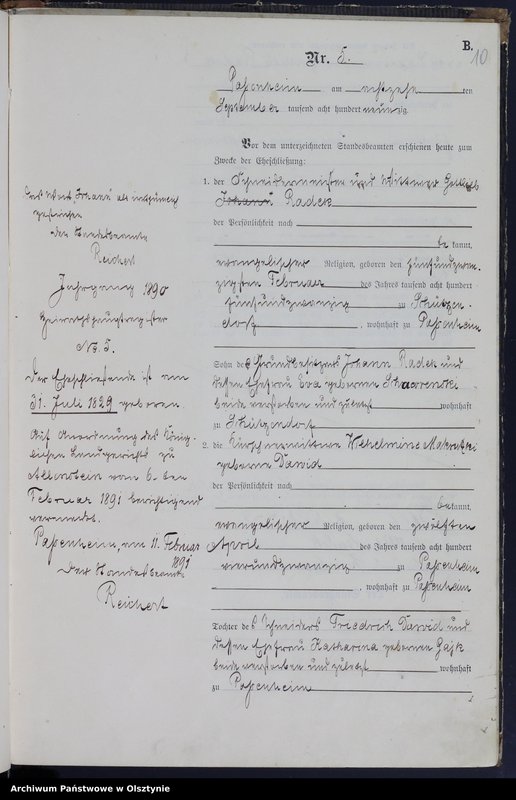 B.
10
Nr. 5.
Passenheim am achtzehn ten
September tausend acht hundert neunzig.
Vor dem unterzeichneten Standesbeamten erschienen heute zum
Zwecke der Eheschließung:
1. der Schneidermeister und Wittwer Gottlieb
Johann Radek
der Persönlichkeit nach
be kannt,
evangelischer Religion, geboren den fünfundzwan-
zigsten Februar des Jahres tausend acht hundert
fünfundzwanzig zu Schützen-
dorf, wohnhaft zu Passenheim
Sohn des Grundbesitzers Johann Radek und
dessen Ehefrau Eva geborenen
beide verstorben und zuletzt wohnhaft
zu Schützendorf
2. die Wilhelmine
geborene Dawid
der Persönlichkeit nach
bekannt,
evangelischer Religion, geboren den zwölften
April des Jahres tausend acht hundert
vierundzwanzig zu Passenheim
, wohnhaft zu Passenheim
Tochter des Schneiders Friedrich Dawid und
dessen Ehefrau Katharina geborenen Gajk
beide verstorben und zuletzt wohnhaft
zu Passenheim
Das Wort Johann als
gestrichen
Der Standesbeamte
Reichert
Jahrgang 1890
Heiraths
No. 5.
Der Eheschließende ist am
31. Juli 1829 geboren.
Auf Anordnung des König-
lichen Landgerichts zu
Allenstein vom 6. ten
Februar 1891 berichtigend
vermerkt.
Passenheim, am 11. Februar
1891
Der Standesbeamte
Reichert
Archiwum Państwowe w Olsztynie